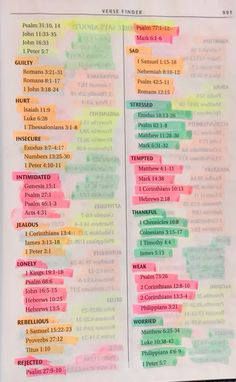 VERSE FINDER
Psalm 31:10, 14
John 11:33-35
John 16:33
1 Peter 5:7
GUILTY
Romans 3:21-31
Romans 8:1-17
1 John 3:18-24
HURT
Isaiah 11:9
Luke 6:28
1 Thessalonians 3:1-8
INSECURE
Exodus 3:7-4:17
Numbers 13:25-30
1 Peter 4:10-11
INTIMIDATED
Genesis 15:1
Psalm 27:1
Psalm 46:1-3
Acts 4:31
JEALOUS
1 Corinthians 13:4
James 3:13-18
1 Peter 2:1
LONELY
1 Kings 19:1-18
Psalm 68:6
John 16:5-15
Hebrews 10:25
Hebrews 13:5
REBELLIOUS
1 Samuel 15:22-23
Proverbs 27:12
Titus 1:10
REJECTED
Psalm 27:9-10
Psalm 77:1-12
Mark 6:1-6
SAD
1 Samuel 1:15-18
Nehemiah 8:10-12
Psalm 42:5-11
Romans 12:15
STRESSED
Exodus 18:13-26
Psalm 62:1-8
Matthew 11:28-30
Mark 6:31-32
TEMPTED
Matthew 4:1-11
Mark 14:38
1 Corinthians 10:13
Hebrews 2:18
THANKFUL
1 Chronicles 16:8
Colossians 3:15-17
1 Timothy 4:4
James 5:13
WEAK
Psalm 73:26
2 Corinthians 12:8-10
2 Corinthians 13:3-4
Philippians 3:21
WORRIED
Matthew 6:25-34
Luke 10:38-42
Philippians 4:6-9
1 Peter 5:7